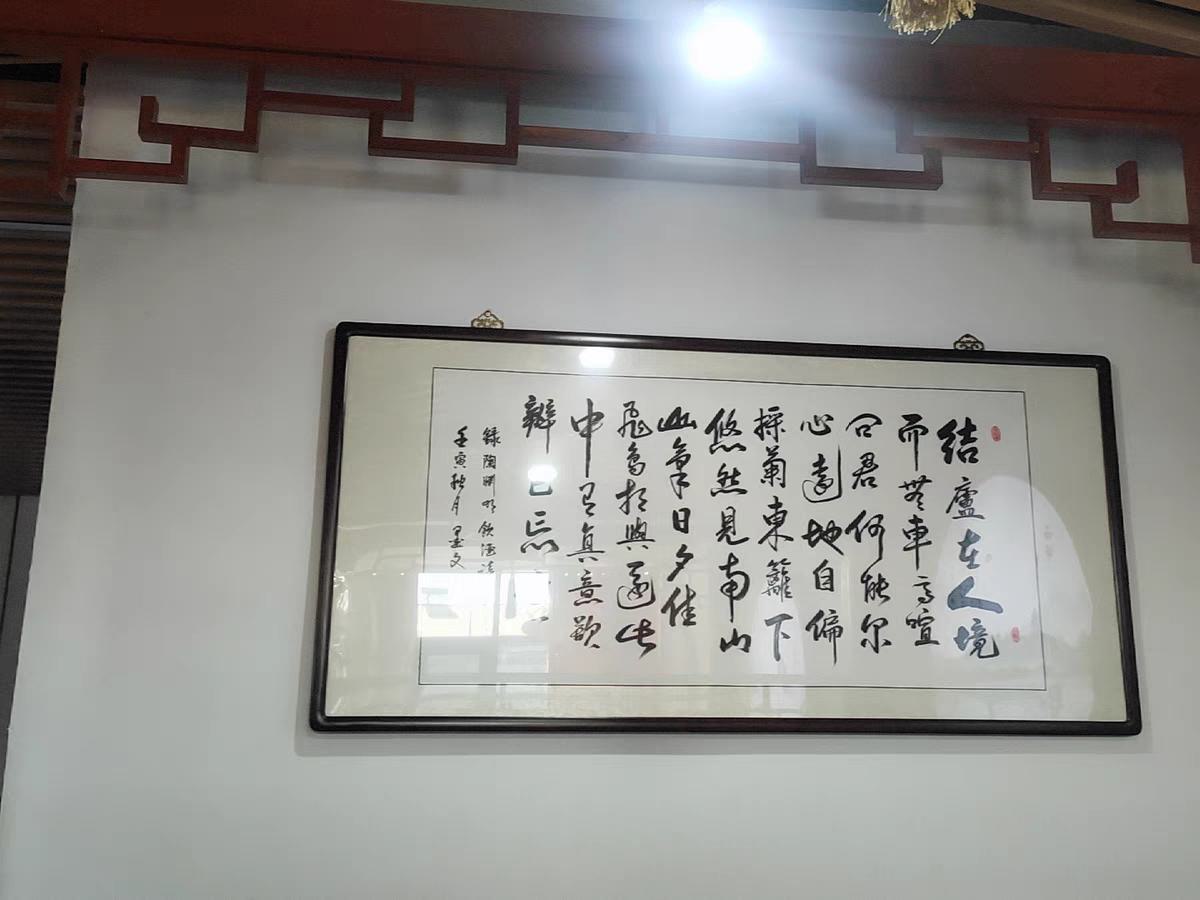 結廬在人境
而無車馬喧
問君何能尔
心遠地自偏
採菊東籬下
悠然見南山
山氣日夕佳
飛鳥相與還此
中有真意欲
辯已忘
録陶渊明飲酒詩
壬寅秋月墨文